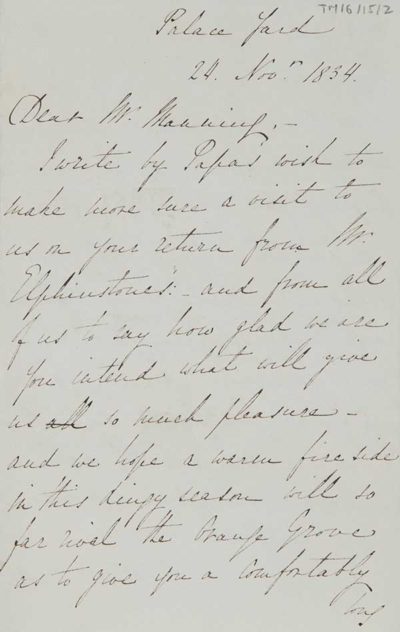 TM/6/15/2
Palace Yard
24. Novr. 1834.
Dear Mr. Manning,—
I write by Papa's wish to
make more sure a visit to
us on your return from Mr.
Elphinstone's:— and from all
of us to say how glad we are
you intend what will give
us all so much pleasure—
and we hope a warm fire side
in this dingy season will so
far rival the Orange Grove
as to give you a comfortably
long